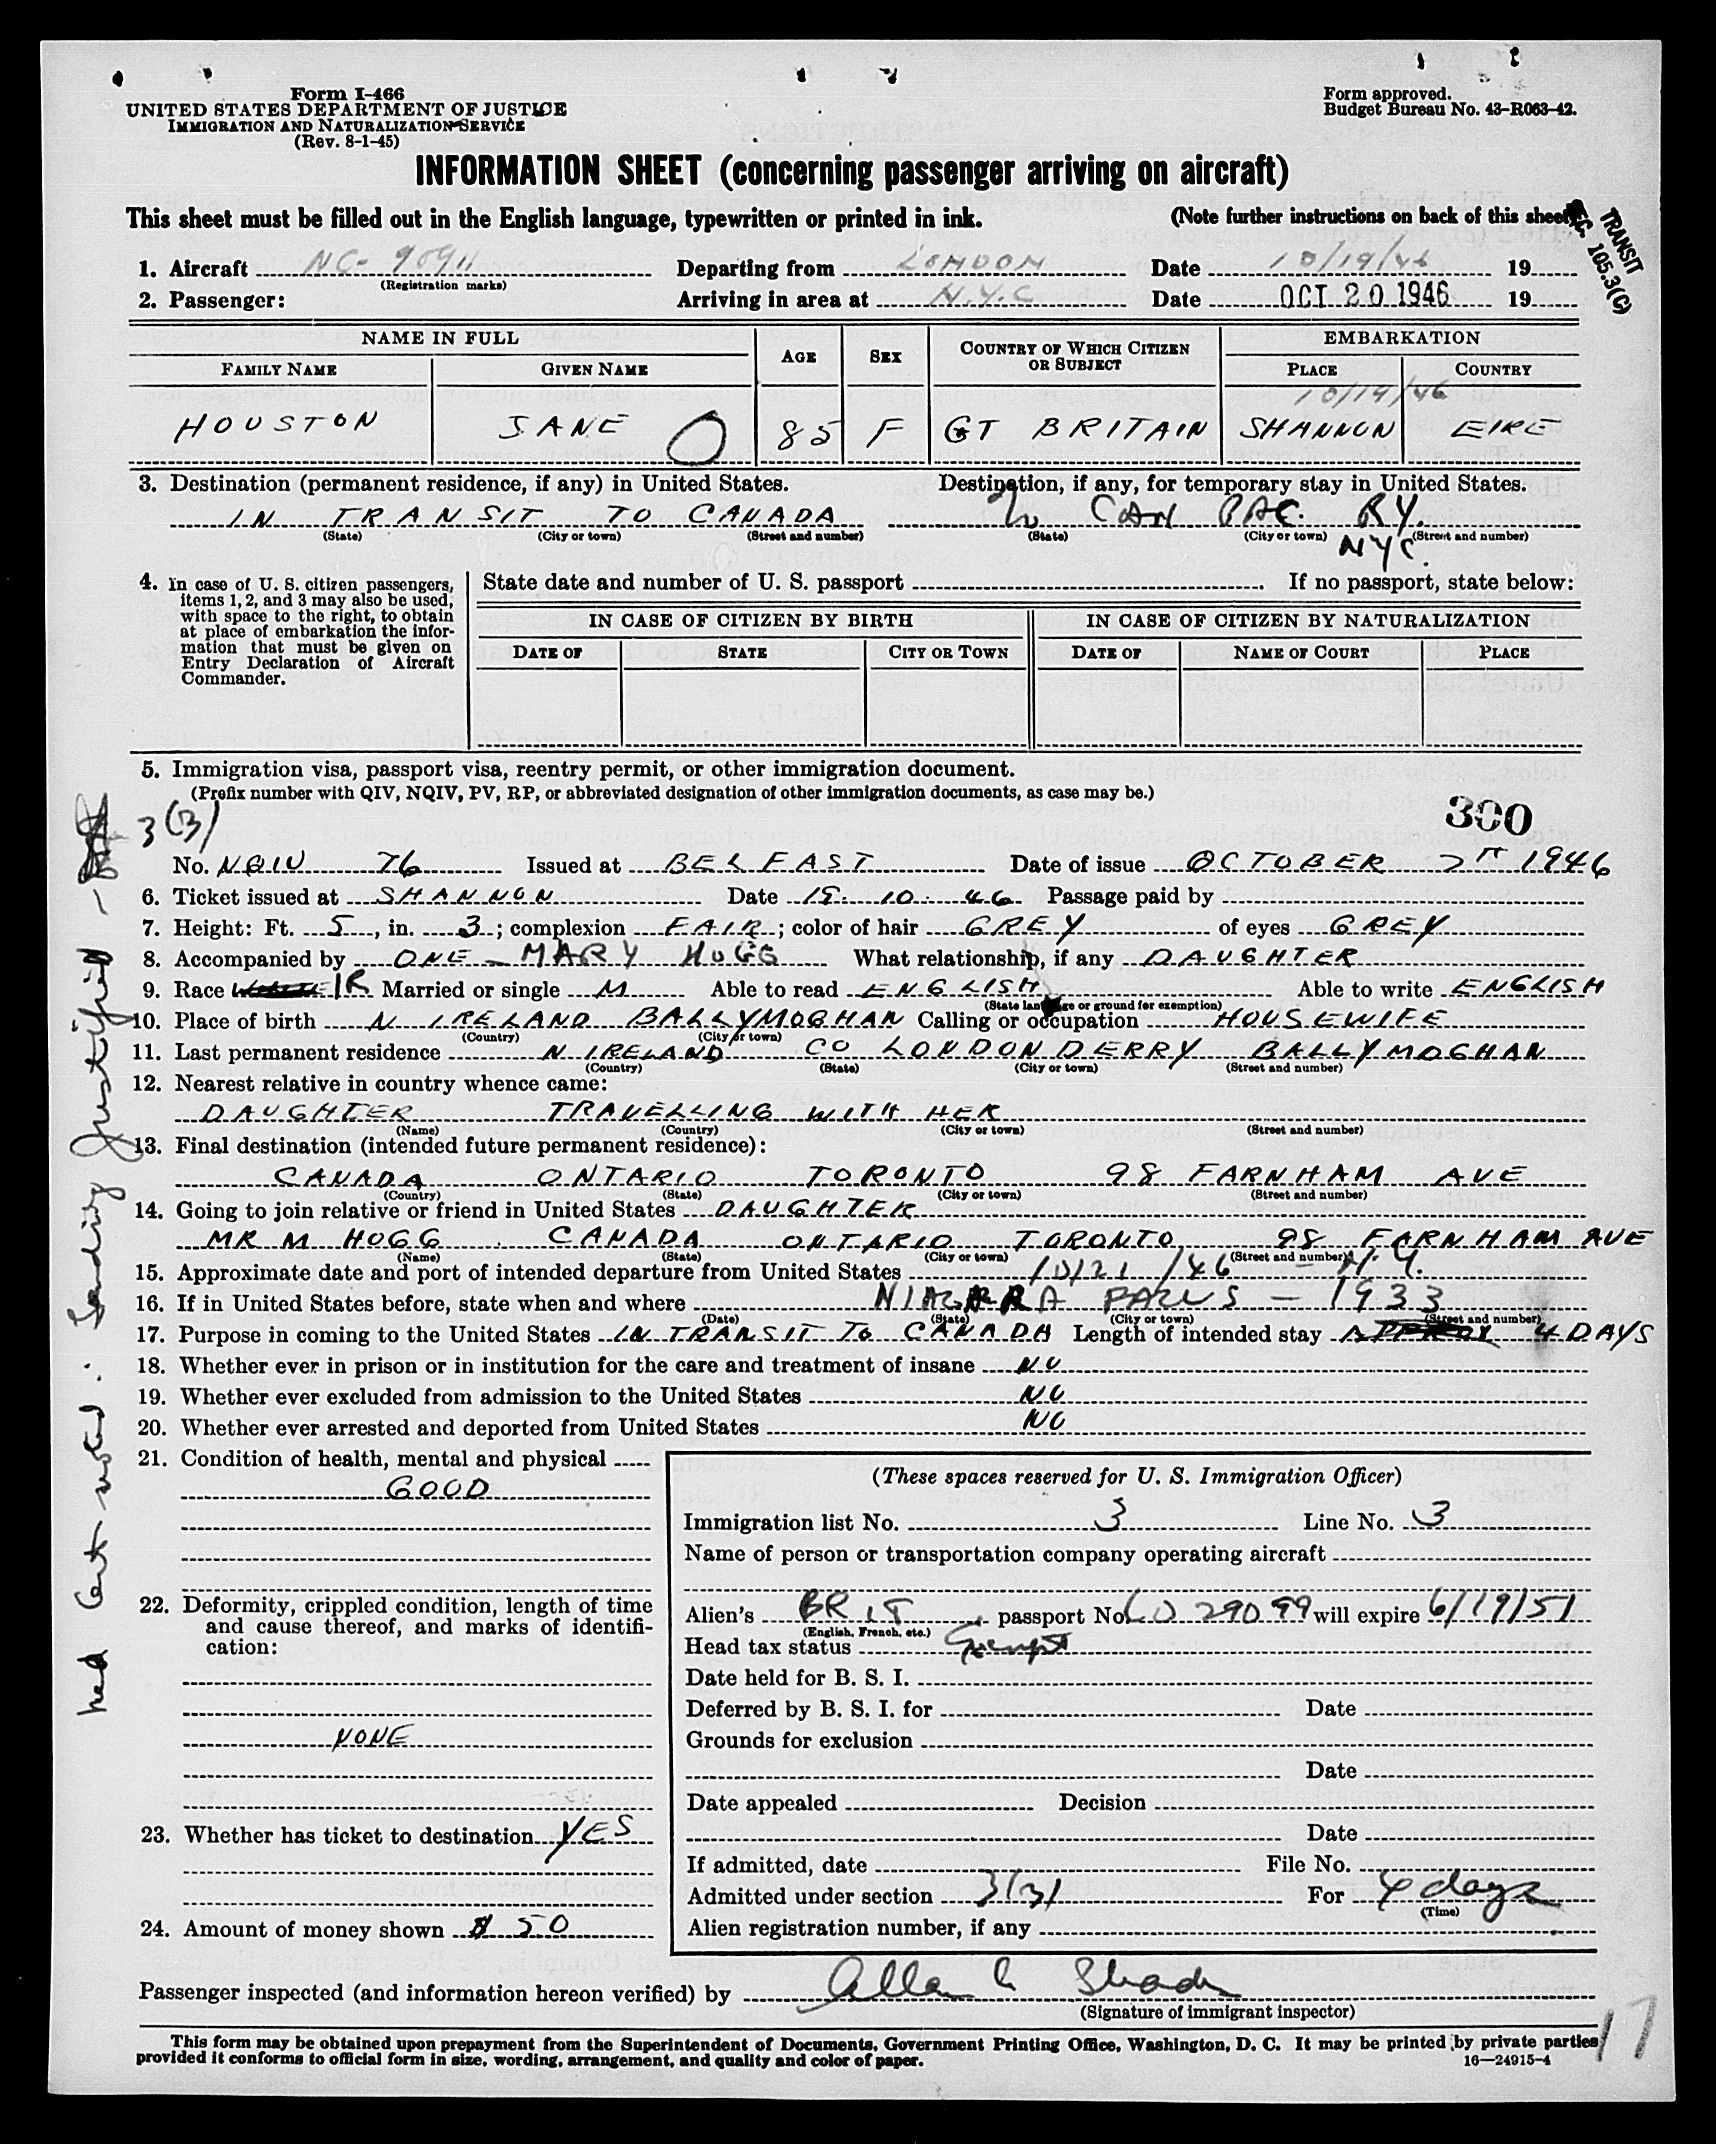 Form I-466
UNITED STATES DEPARTMENT OF JUSTICE
IMMIGRATION AND NATURALIZATION SERVICE
(Rev. 8-1-45)
Form approved.
Budget Bureau No. 43-R063-42.
INFORMATION SHEET (concerning passenger arriving on aircraft)
This sheet must be filled out in the English language, typewritten or printed in ink. (Note further instructions on back of this sheet)
TRANSIT
SEC. 105.3(C)
1. Aircraft NC- 90911 Departing from LONDON Date 10/19/46 19
(Registration marks)
2. Passenger: Arriving in area at N.Y.C Date OCT 20 1946 19
NAME IN FULL AGE SEX COUNTRY OF WHICH CITIZEN OR SUBJECT EMBARKATION
FAMILY NAME GIVEN NAME PLACE COUNTRY
10/19/46
HOUSTON JANE O 85 F GT BRITAIN SHANNON EIRE
3. Destination (permanent residence, if any) in United States. Destination, if any, for temporary stay in United States.
IN TRANSIT TO CANADA % CAN PAC. RY.
(State) (City or town) (Street and number) (State) (City or town) (Street and number)
NYC.
4. In case of U. S. citizen passengers, items 1, 2, and 3 may also be used, with space to the right, to obtain at place of embarkation the information that must be given on Entry Declaration of Aircraft Commander.
State date and number of U. S. passport . If no passport, state below:
IN CASE OF CITIZEN BY BIRTH IN CASE OF CITIZEN BY NATURALIZATION
DATE OF STATE CITY OR TOWN DATE OF NAME OF COURT PLACE
5. Immigration visa, passport visa, reentry permit, or other immigration document.
(Prefix number with QIV, NQIV, PV, RP, or abbreviated designation of other immigration documents, as case may be.)
3(3) 300
No. NQIV 76 Issued at BELFAST Date of issue OCTOBER 1946
6. Ticket issued at SHANNON Date 19. 10. 46 Passage paid by
7. Height: Ft. 5, in. 3; complexion FAIR; color of hair GREY of eyes GREY
8. Accompanied by ONE - MARY HOGG What relationship, if any DAUGHTER
9. Race IR Married or single M Able to read ENGLISH Able to write ENGLISH
(State language or ground for exemption)
10. Place of birth N IRELAND BALLYMOGHAN Calling or occupation HOUSEWIFE
(Country) (City or town)
11. Last permanent residence N IRELAND CO LONDONDERRY BALLYMOGHAN
(Country) (State) (City or town) (Street and number)
12. Nearest relative in country whence came:
DAUGHTER TRAVELLING WITH HER
(Name) (Country) (City or town) (Street and number)
13. Final destination (intended future permanent residence):
CANADA ONTARIO TORONTO 98 FARNHAM AVE
(Country) (State) (City or town) (Street and number)
14. Going to join relative or friend in United States DAUGHTER
MR M HOGG CANADA ONTARIO TORONTO 98 FARNHAM AVE
(Name) (State) (City or town) (Street and number)
15. Approximate date and port of intended departure from United States 10/21/46 - N.Y.
16. If in United States before, state when and where NIAGARA FALLS - 1933
(Date) (State) (City or town) (Street and number)
17. Purpose in coming to the United States IN TRANSIT TO CANADA Length of intended stay APPROX 4 DAYS
18. Whether ever in prison or in institution for the care and treatment of insane NO
19. Whether ever excluded from admission to the United States NO
20. Whether ever arrested and deported from United States NO
21. Condition of health, mental and physical
GOOD
22. Deformity, crippled condition, length of time and cause thereof, and marks of identification:
NONE
23. Whether has ticket to destination YES
24. Amount of money shown $ 50
(These spaces reserved for U. S. Immigration Officer)
Immigration list No. 3 Line No. 3
Name of person or transportation company operating aircraft
Alien's BRIT, passport No. LD 29099 will expire 6/19/51
(English, French, etc.)
Head tax status Exempt
Date held for B. S. I.
Deferred by B. S. I. for Date
Grounds for exclusion
Date
Date appealed Decision
Date
If admitted, date File No.
Admitted under section 3(3) For 4 days
(Time)
Alien registration number, if any
Passenger inspected (and information hereon verified) by Allan
(Signature of immigrant inspector)
This form may be obtained upon prepayment from the Superintendent of Documents, Government Printing Office, Washington, D. C. It may be printed by private parties
provided it conforms to official form in size, wording, arrangement, and quality and color of paper. 16—24915-4
17
Med Cert noted. Landing justified -